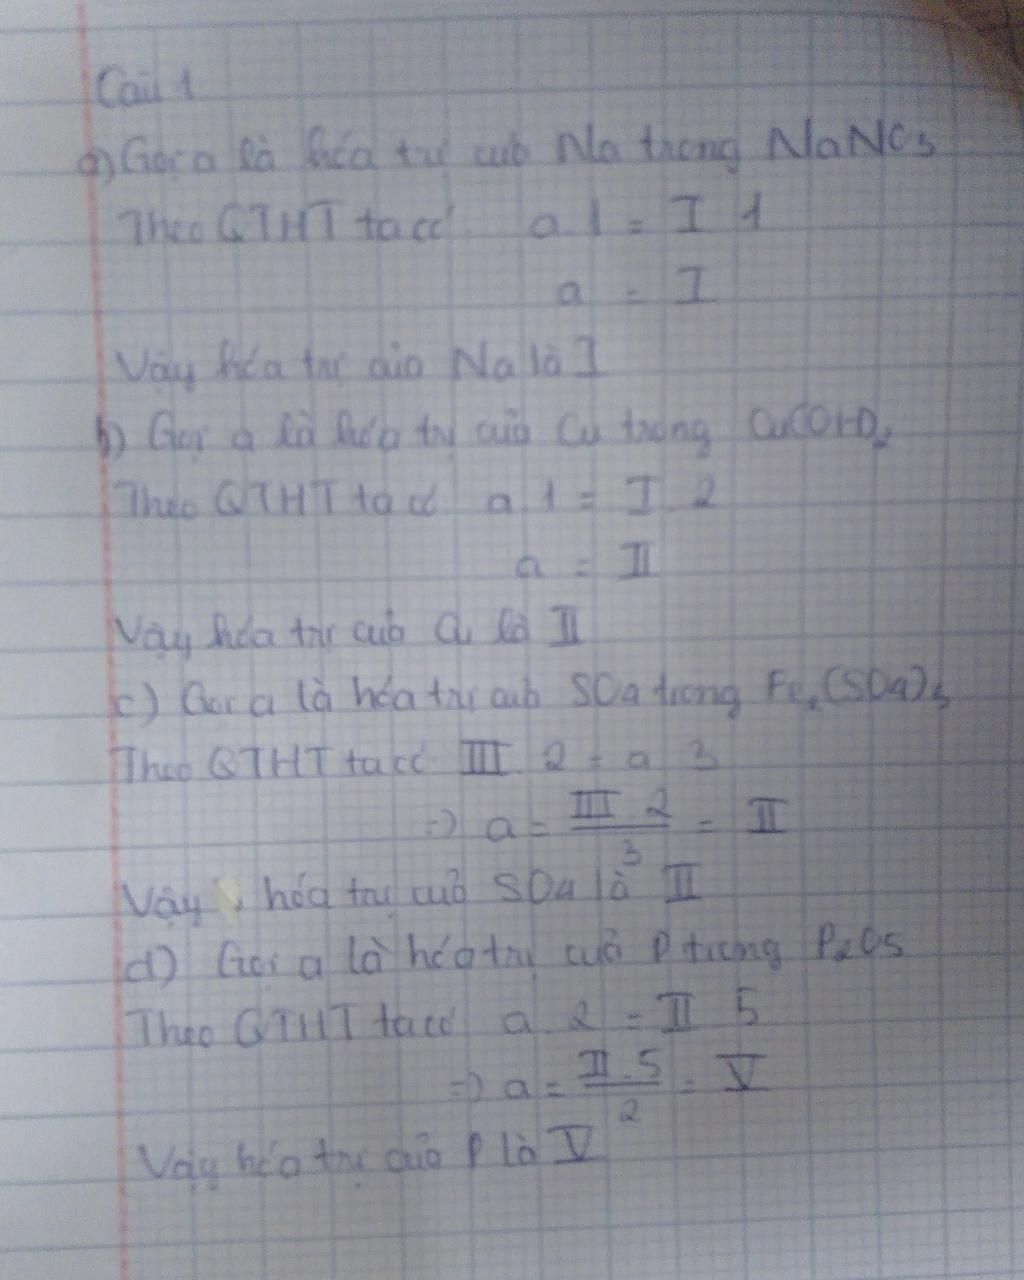 Câu 1
a) Gọi a là hóa trị của Na trong NaNO3
Theo QTHT ta có a.1 = I.1
a = I
Vậy hóa trị của Na là I
b) Gọi a là hóa trị của Cu trong Cu(OH)2
Theo QTHT ta có a.1 = I.2
a = II
Vậy hóa trị của Cu là II
c) Gọi a là hóa trị của SO4 trong Fe2(SO4)3
Theo QTHT ta có III.2 = a.3
=> a = III.2/3 = II
Vậy hóa trị của SO4 là II
d) Gọi a là hóa trị của P trong P2O5
Theo QTHT ta có a.2 = II.5
=> a = II.5/2 = V
Vậy hóa trị của P là V